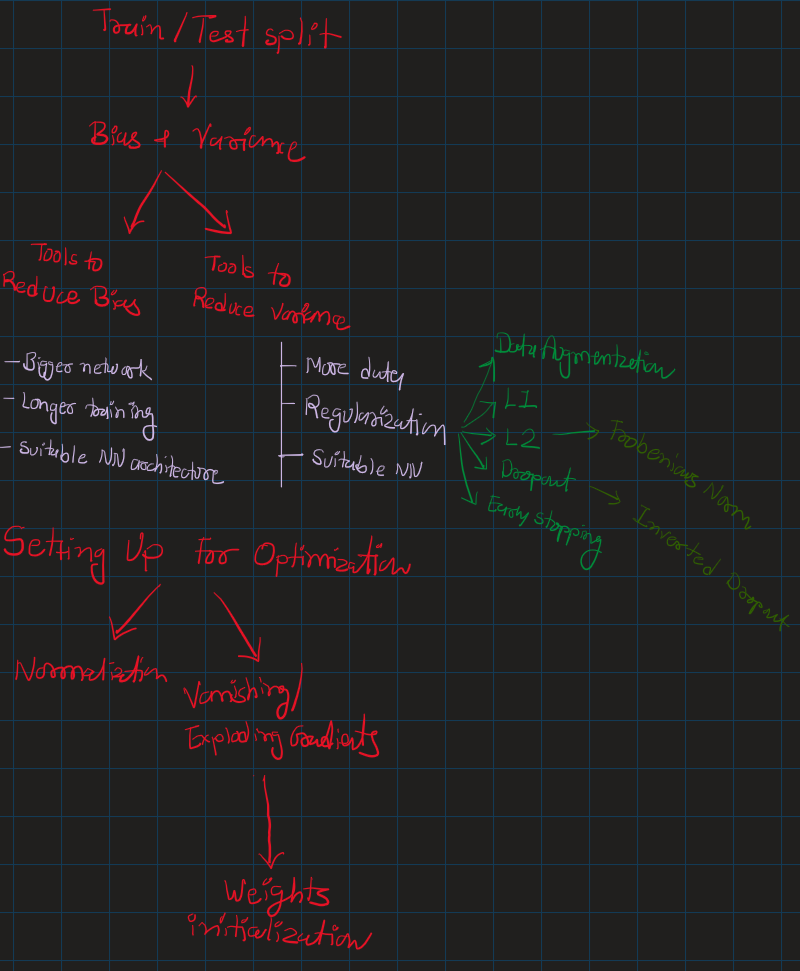 Train / Test split
Bias + Variance
Tools to
Reduce Bias
Tools to
Reduce Variance
- Bigger network
- Longer training
- Suitable NN architecture
- More data
- Regularization
- Suitable NN
Data Augmentation
L1
L2
Dropout
Early Stopping
Frobenius Norm
Inverted Dropout
Setting Up for Optimization
Normalization
Vanishing/
Exploding Gradients
Weights
initialization